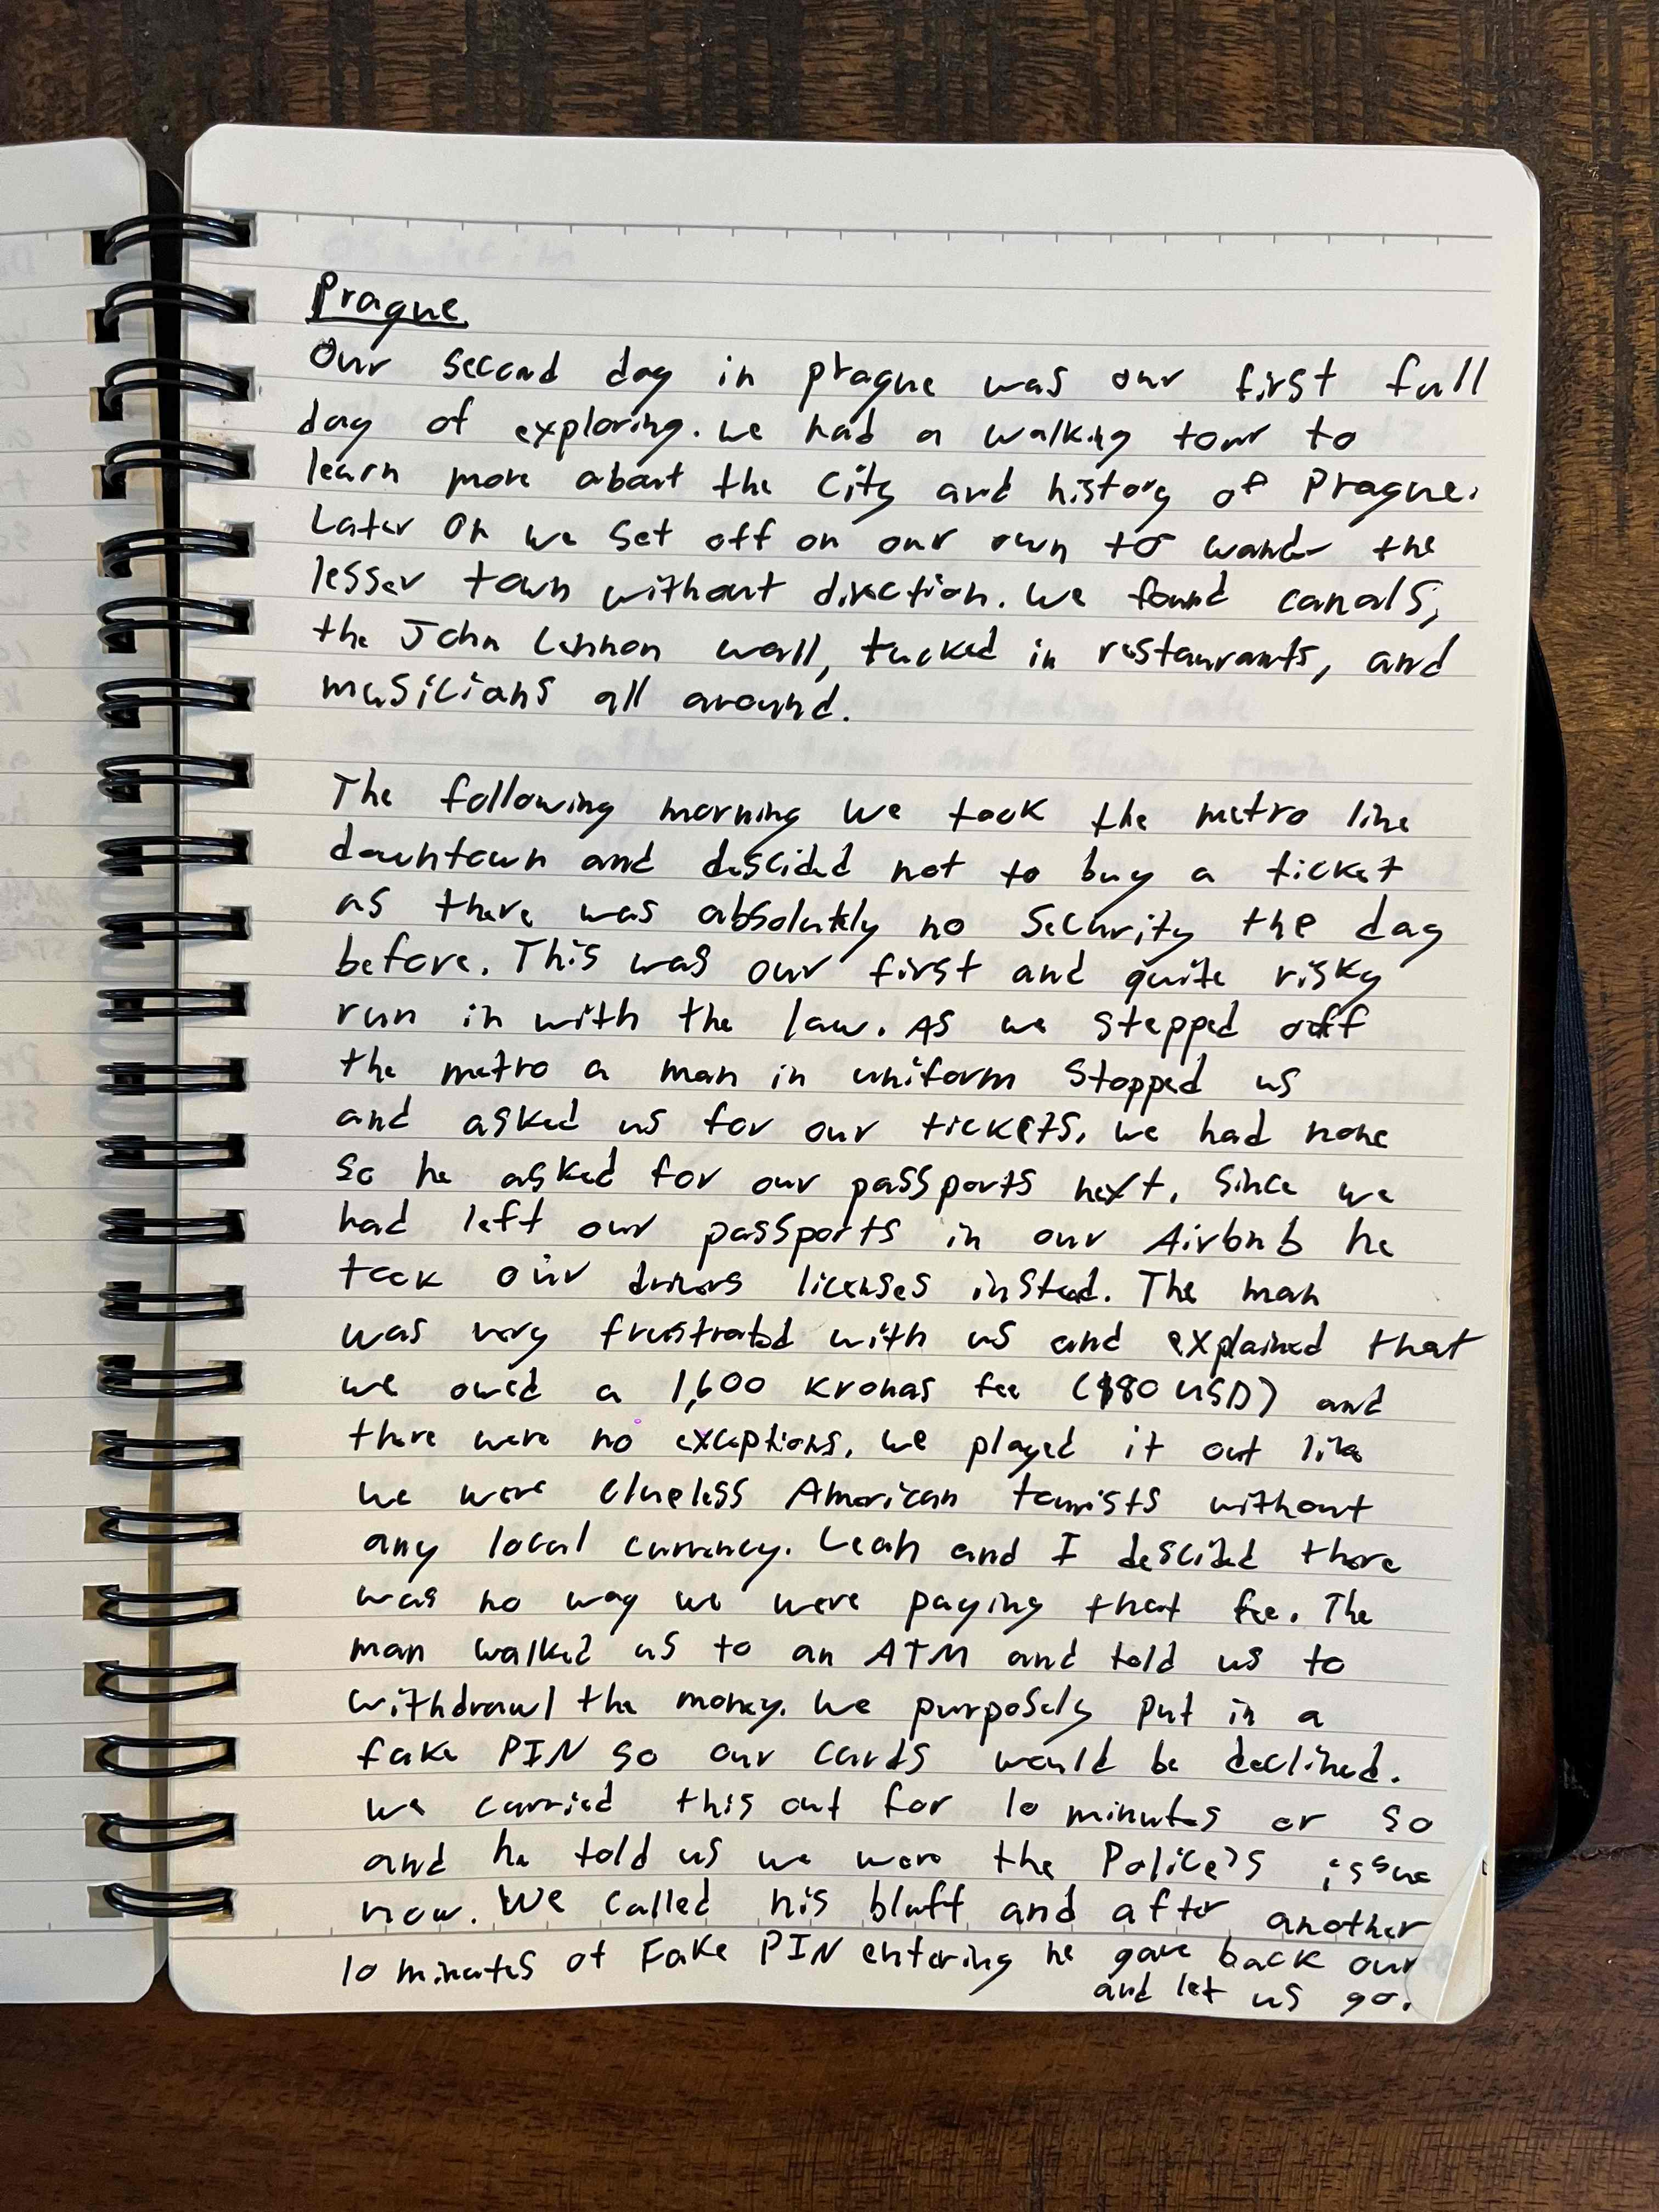 Prague
Our second day in prague was our first full
day of exploring. we had a walking tour to
learn more about the City and history of Prague.
Later on we set off on our own to wander the
lesser town without direction. We found canals,
the John Lennon wall, tucked in restaurants, and
musicians all around.
The following morning we took the metro line
downtown and descided not to buy a ticket
as there was absolutely no security the day
before. This was our first and quite risky
run in with the law. As we stepped off
the metro a man in uniform stopped us
and asked us for our tickets. we had none
so he asked for our passports next. Since we
had left our passports in our Airbnb he
took our drivers licenses instead. The man
was very frustrated with us and explained that
we owed a 1,600 Kronas fee ($80 USD) and
there were no exceptions. we played it out like
we were clueless American tourists without
any local currency. Leah and I descided there
was no way we were paying that fee. The
man walked us to an ATM and told us to
withdrawl the money. we purposely put in a
fake PIN so our cards would be declined.
we carried this out for 10 minutes or so
and he told us we were the Police's issue
now. We called his bluff and after another
10 minutes of Fake PIN entering he gave back our
and let us go.